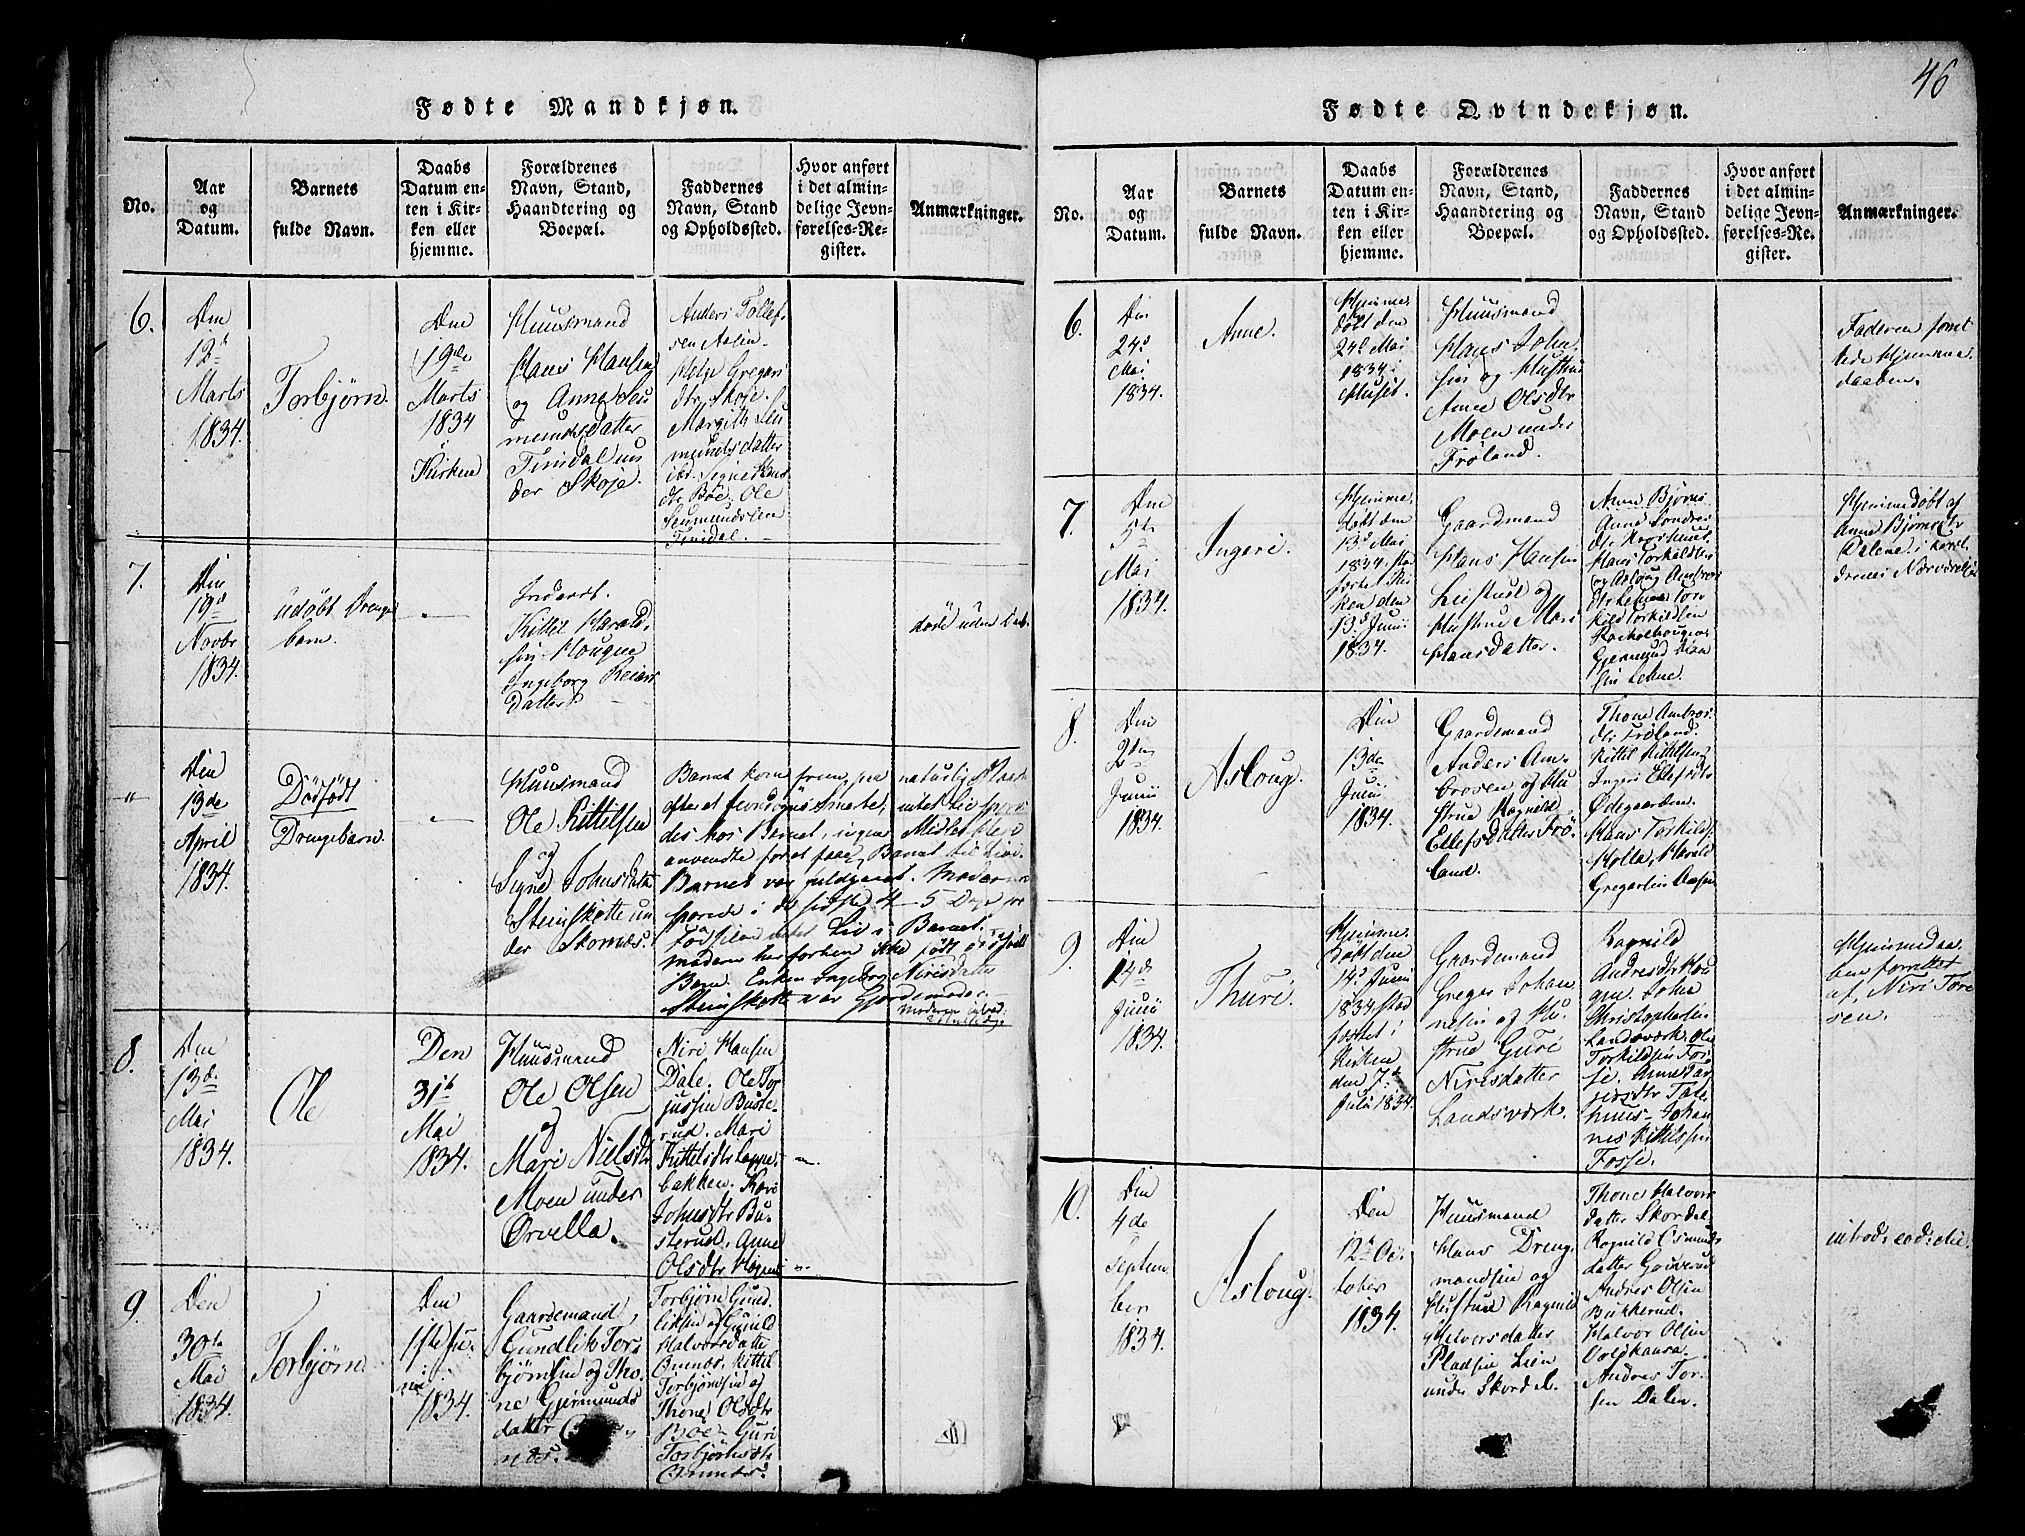 46
Fødte Mandkjøn.
No.
Aar
og
Datum.
Barnets
fulde Navn.
Daabs
Datum en-
ten i Kir-
ken eller
hjemme.
Forældrenes
Navn, Stand,
Haandtering og
Boepæl.
Faddernes
Navn, Stand
og Opholdssted.
Hvor anført
i det almin-
delige Jevn-
førelses-Re-
gister.
Anmærkninger.
6.
Den
12te
Marts
1834.
Torbjørn.
Den
19de
Marts
1834
Kirken
Huusmand
Hans Hansen
og Anne Seu
mundsdatter
Tindal un
der Skoje.
Anders Tollef-
sen Aasen.
Helje Gregari
dtr Skoje.
Margith Seu
mundsdatter
ibd. Signe
dtr Böe. Ole
Seumundsen
Tindal.
7.
Den
19de
Novbr
1834.
Udöbt Drenge
barn.
Inderst.
Kittil Harald-
sen Hougne
Ingeborg Reiers
Datter.
döde uden Daab.
"
Den
13de
April
1834.
Dødfödt
Drengebarn.
Huusmand
Ole Kittelsen
og
Signe Johnsdatt
Steinskotte un
der Skornæs.
Barnet kom frem paa naturlig Maade
efter et Smerte, intet Liv spore
des hos Barnet, ingen Midler blev
anvendte for at faae Barnet til Live.
Barnet var fuldbaaret. Moderen
sporede i de sidste 4-5 Dage för
Förselen intet Liv i Barnet.
moderen har forhen ikke född dödfödt
Barn. Enken Ingeborg Nirisdatter
Steinskotte var Gjordemoder.
8.
Den
13de
Mai
1834.
Ole
Den
31te
Mai
1834.
Huusmand
Ole Olsen
og
Mari Nielsdtr
Moen under
Örvella.
Niri Hansen
Dale. Ole Tor
jussen Buste-
rud. Mari
Kittelsdtr
bakken. Kari
Johnsdtr Bu-
sterud. Anne
Olsdtr
9.
Den
30te
Mai
1834.
Torbjørn.
Den
1ste Ju-
ni
1834.
Gaardemand
Gundlik Tor-
björnsen og Tho-
ne Gjermunds
datter
næs.
Torbjörn Gund-
liksen og Gunild
Halvorsdatter
Omnæs. Kittil
Torbjörnsen og
Thone Olsdtr
Boe. Guri
Torbjörnsdtr
Omnæs.
Fødte Qvindekjøn.
No.
Aar
og
Datum.
Barnets
fulde Navn.
Daabs
Datum en-
ten i Kir-
ken eller
hjemme.
Forældrenes
Navn, Stand,
Haandtering og
Boepæl.
Faddernes
Navn, Stand
og Opholdssted.
Hvor anført
i det almin-
delige Jevn-
førelses-Re-
gister.
Anmærkninger.
6.
Den
24de
Mai
1834.
Anne.
Hjemme-
döbt den
24de Mai
1834 i
Huset.
Huusmand
Hans John-
sen og Hustru
Anne Olsdtr
Moen under
Fröland.
Faderen forret
tede Hjemme-
daaben.
7.
Den
5te
Mai
1834.
Ingeri.
Hjemme-
döbt den
13de Mai
1834. stad
fæstet Kir
ken den
13de Junii
1834.
Gaardmand
Hans Hansen
og
Hustrue Mari
Hansdatter.
Anne Björns
Anne Sondres
dtr
Hans Torkildsen
og Aaslaug Ambros
dtr Tor-
kild Torkildsen
Gjermund Han
sen
Hjemmedöbt af
Anne Björnsdtr
Dalene i Foræl-
drenes Nærværelse
8.
Den
2den
Junii
1834.
Asloug.
Den
13de
Junii
1834.
Gaardemand
Anders Am-
brosen og Hu
strue Ragnild
Ellefsdatter Frö-
land.
Thone Ambros-
dtr Fröland.
Kittil Kittelsen
Ingeri Ellefsdtr
Ödegaarden.
Hans Torkilds
Molla, Harald
Gregarsen Aasen
9.
Den
14de
Junii
1834.
Thuri.
Hjemme-
döbt den
14de Junii
1834 stad
fæstet i
Kirken
den 7de
Julii 1834.
Gaardemand
Gregar Johan
nesen og Hu-
strue Guri
Nirisdatter
Landsværk.
Ragnild
Andresdtr Hou
gne. John
Christophersen
Landsværk. Ole
Torkildsen Fos-
se. Anne
dtr
huus. Johan
nes Kittelsen
Fosse.
Hjemmedaa-
ben forrettet
af Niri Tore
sen.
10.
Den
4de
Septem
ber
1834.
Asloug.
Den
12te Oc-
tober
1834.
Huusmand
Hans Dreng-
mandsen og
Hustrue Ragnild
Halvorsdatter
Pladsen Lien
under Skordal.
Thone Halvors
datter Skordal.
Ragnild Osmunds
datter
Andres Olsen
Bukkerud.
Halvor Olsen
Andres Tor-
sen Dalen.
introd: eod: die.